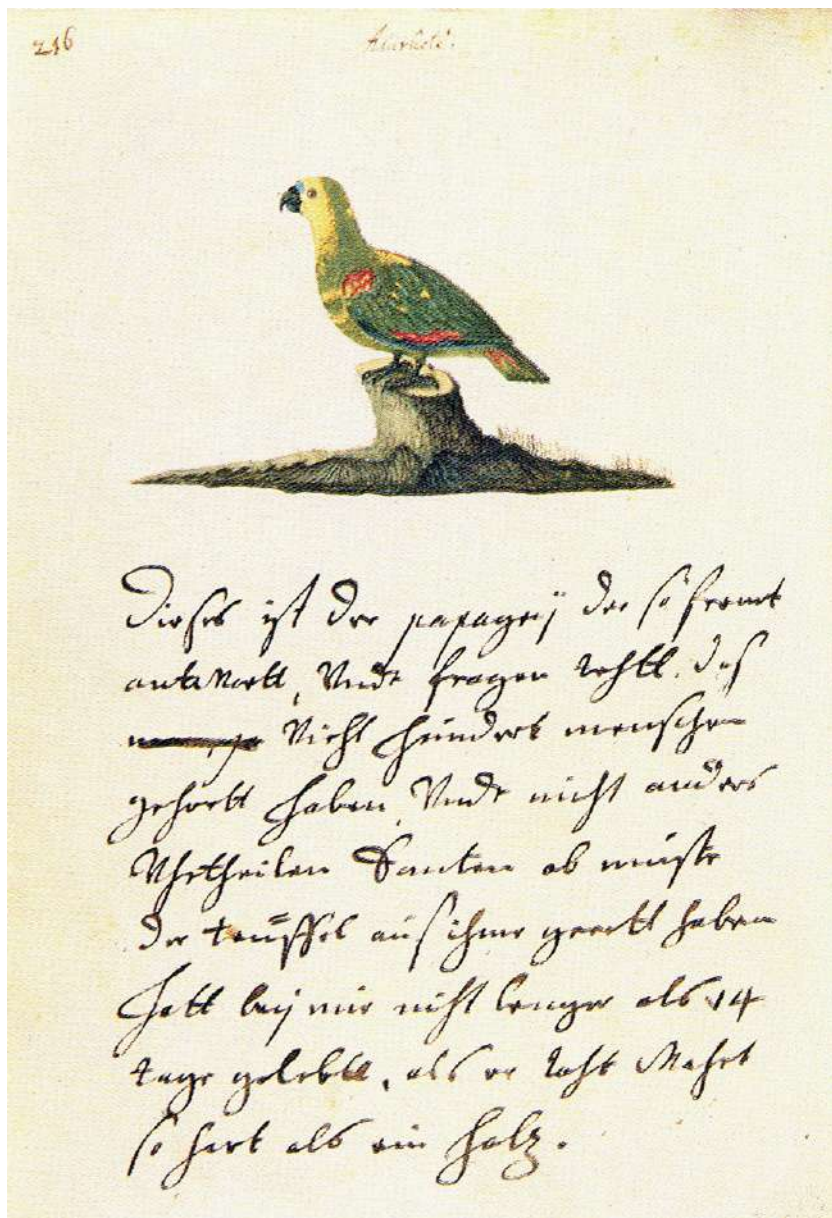 216
Dieses ist der papageij der so fremt
antwortt, Unde fragen dehtt. das
Viehl hundert menschen
gehortt haben, Unde nicht anders
Uhrtheilen Konten ob müste
der teuffel aus ihme geredt haben
hatt beij mir nicht lenger als 14
tage gelebtt, als er doht Wahrt
so hart als ein holtz.